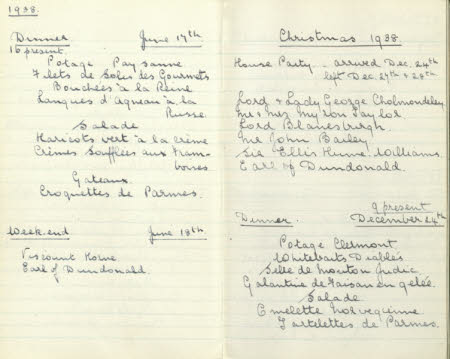 1938.
Dinner June 17th
16 present.
Potage Paysanne
Filets de Soles des Gourmets
Bouchées à la Reine
Langues d'Agneau à la
Russe.
Salade
Haricots vert à la crème
Crèmes Soufflées aux Fram-
boises
Gateaux.
Croquettes de Parmes.
Week-end June 18th.
Viscount Horne
Earl of Dundonald.
Christmas 1938.
House Party - arrived Dec. 24th
left Dec. 27th & 28th.
Lord & Lady George Cholmondeley
Mr & Mrs Myron Taylor
Lord Blanesburgh
Mr John Bailey
Sir Ellis Hume-Williams
Earl of Dundonald.
9 present
Dinner. December 24th
Potage Clermont
Whitebaits Diablés
Selle de Mouton Judic
Galantine de Faisan en gelée.
Salade
Omelette Norvegienne
Tartelettes de Parmes.